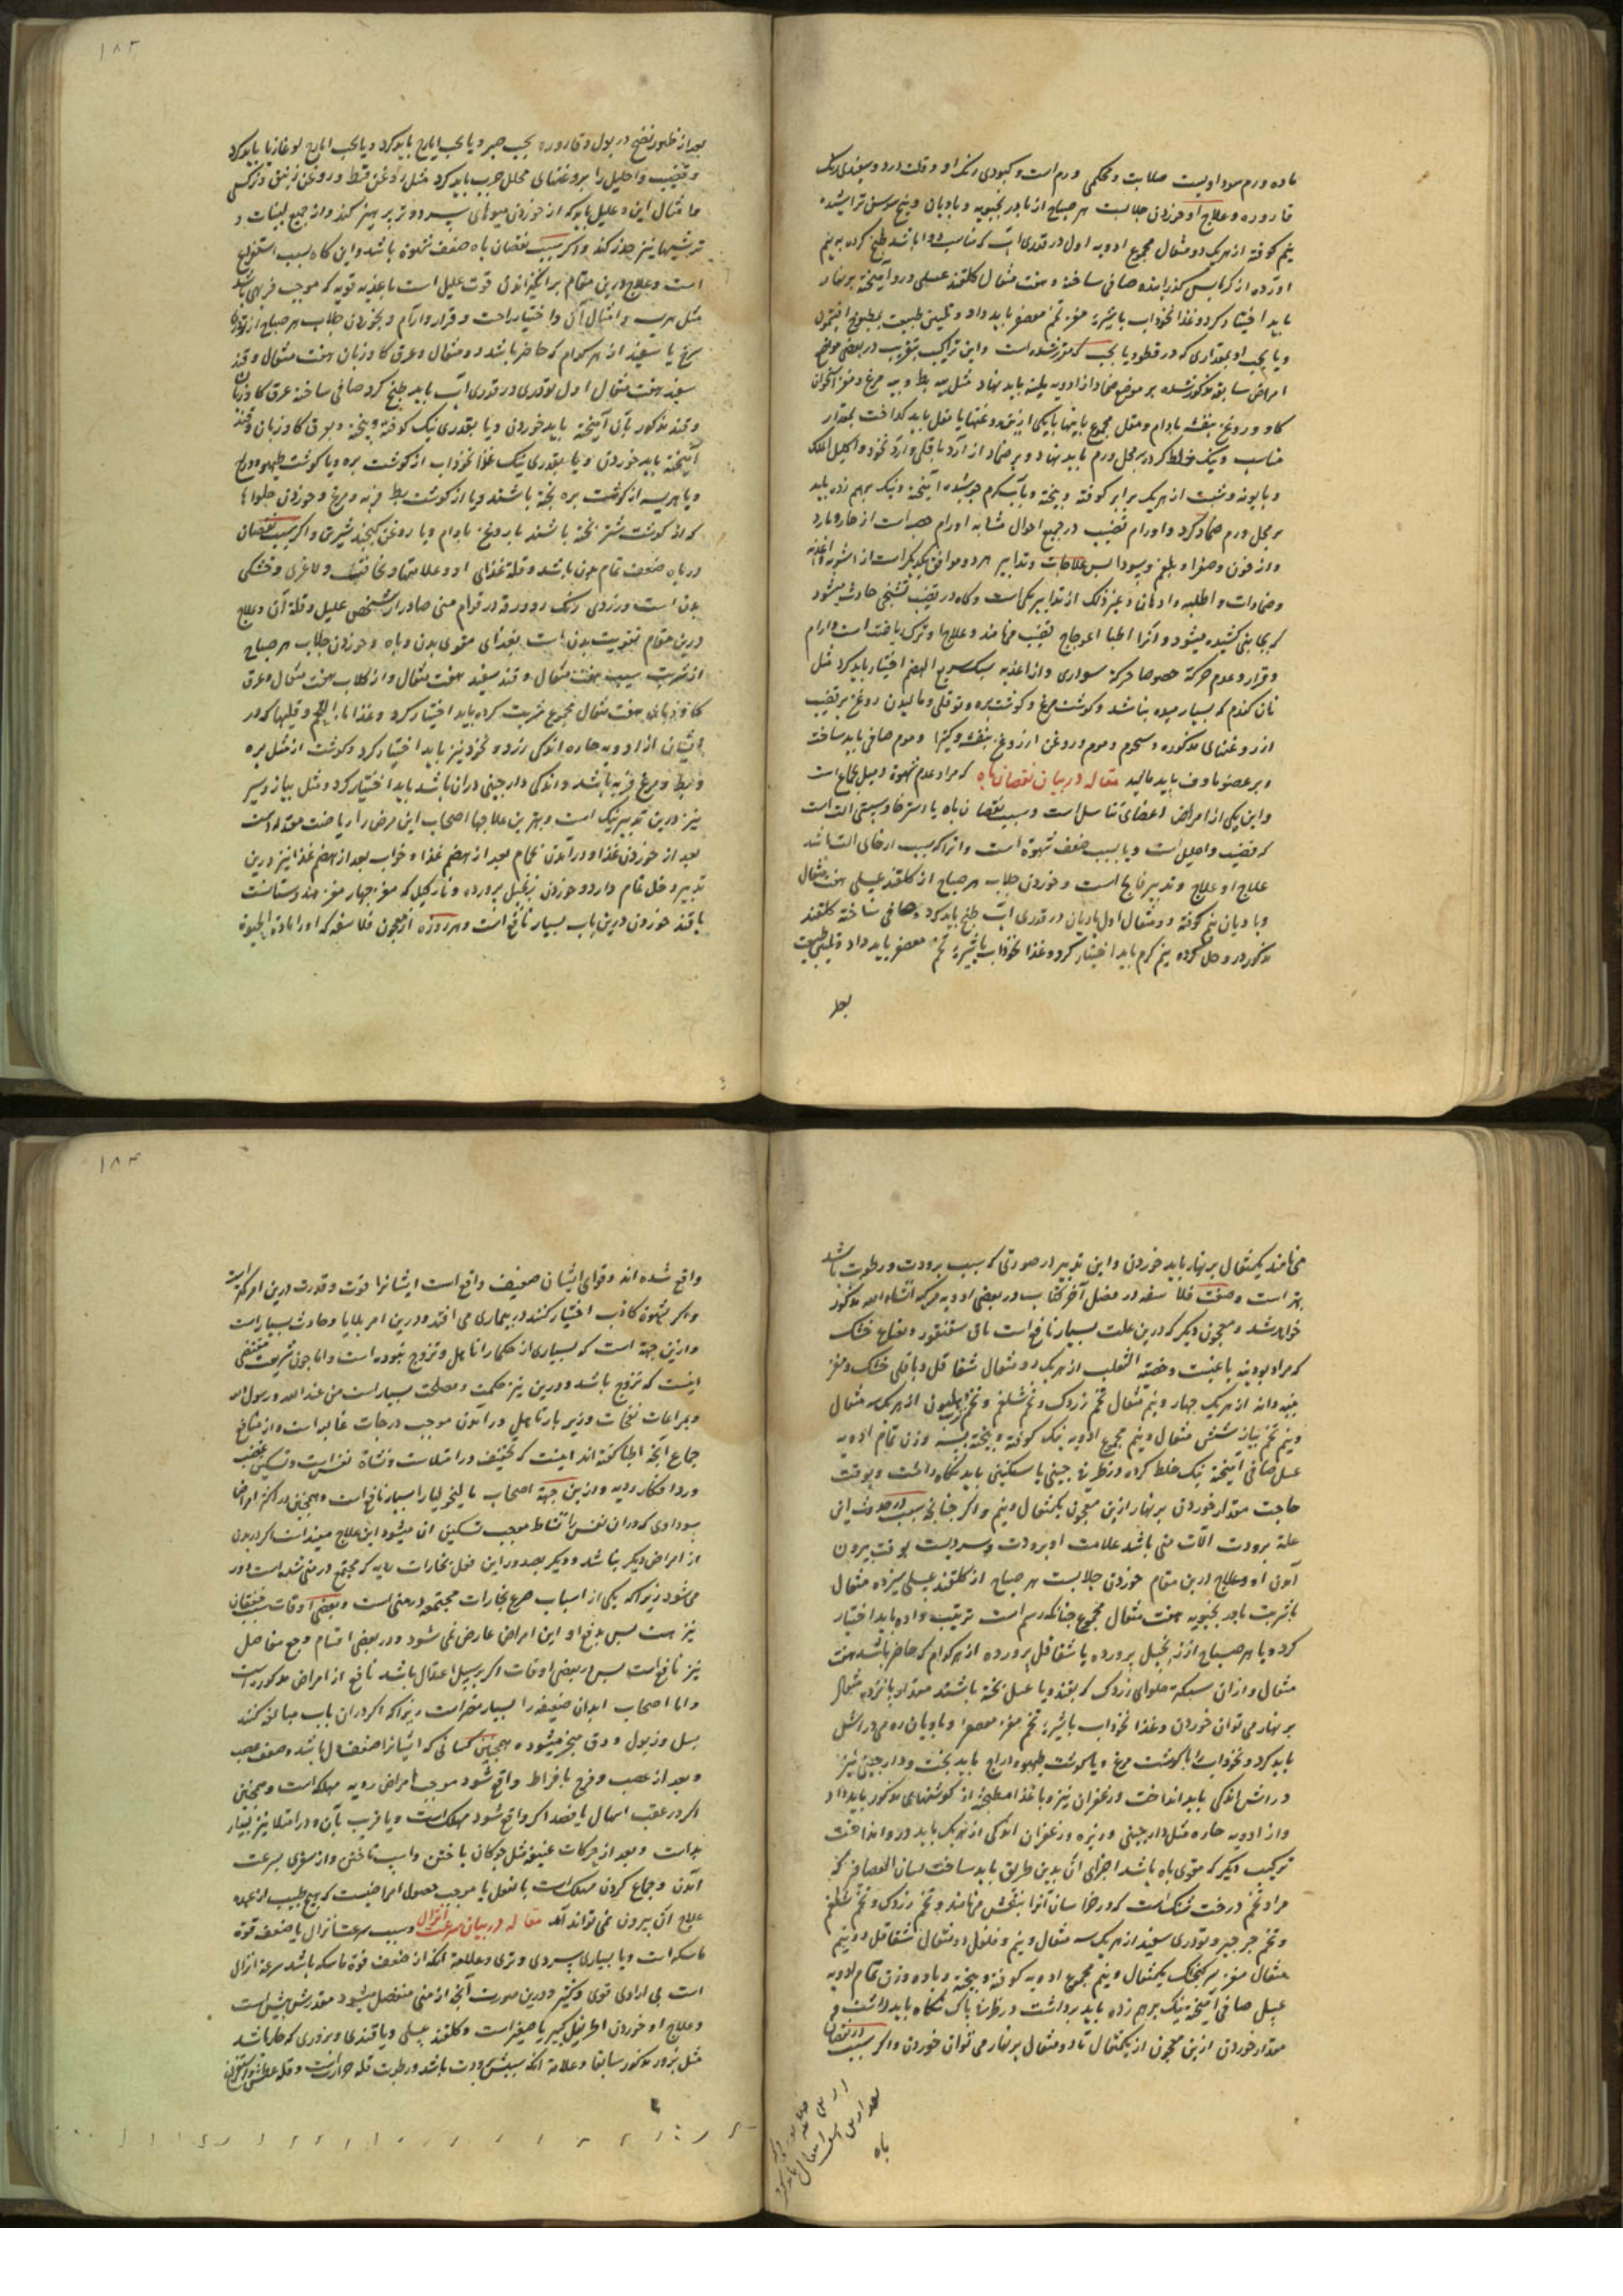 ماده ورم سوداویست صلابت و محکمی ورم است و کبودی رنک او و قلت درد و سفیدی رنک
قاروره و علاج او خوردن جلابست هر صباح از بادرنجبویه و بادیان و بیخ سوسن تراشیده
نیم کوفته از هریک دو مثقال مجموع ادویه اول در قدری آب که مناسب دوا باشد طبخ کرده به نیم
آورده از کرباس کذرانیده صافی ساخته و هفت مثقال کلقند عسلی درو آمیخته بر نهار
باید اختیار کرد و غذا نخوداب باشیره مغز تخم معصفر باید داد و تلیین طبیعت بمطبوخ افتیمون
و یا بحب او بمقداری که در قطور یا بحب که مقرر شده است و این تراکیب بتقریب در بعضی مواضع
امراض سابقه مذکور شده بر موضع ضماد از ادویه ملینه باید نهاد مثل پیه بط و پیه مرغ و مغز استخوان
کاو و روغن بنفشه بادام و مقل مجموع باینها یا بیکی ازین روغنها یا مقل باید کداخت بمقدار
مناسب و نیک خلط کرد بر محل ورم باید نهاد و بر ضماد از آرد باقلی و آرد نخود و اکلیل الملک
و بابونه و شبت از هریک برابر کوفته و بیخته و بآب کرم جوشیده آمیخته و نیک برهم زده باید
بر محل ورم ضماد کرد و اورام قضیب در جمیع احوال مشابه اورام خصیه است از حار و بارد
و از خون و صفرا و بلغم و سودا پس علاجات و تدابیر هر دو موافق یکدیکر است از اشربه و اغذیه
و ضمادات و اطلیه و ادهان و غیر ذلک از تدابیر یکی است و کاه در قضیب تشنجی حادث میشود
که بجانبی کشیده میشود و آنرا اطبا اعوجاج قضیب میخوانند و علاجها و ترک ریاضت است و آرام
و قرار و عدم حرکة خصوصا حرکة سواری و از اغذیه سبک سریع الهضم اختیار باید کرد مثل
نان کندم که بسیار میده نباشد و کوشت مرغ و کوشت بره و توقلی و مالیدن روغن بر قضیب
از روغنهای مذکوره و شحوم و موم و روغن از روغن بنفشه و کتیرا و موم صافی باید ساخت
و بر عضو ماوف باید مالید مقاله در بیان نقصان باه که مراد عدم شهوة و میل بجماع است
و این یکی از امراض اعضای تناسل است و سبب نقصان باه یا استرخا و سستی الت است
که قضیب و احلیل است و یا بسبب ضعف شهوة است و انرا که سبب ارخای الت باشد
علاج او علاج و تدبیر فالج است و خوردن جلاب هر صباح از کلقند عسلی هفت مثقال
و بادیان نیم کوفته دو مثقال اول بادیان در قدری آب طبخ باید کرد و صافی ساخته کلقند
مذکور درو حل کرده نیم کرم باید اختیار کرد و غذا نخوداب باشیره تخم معصفر باید داد و تلیین طبیعت
بعد
۱۸۳
بعد از ظهور نضج در بول و قاروره بحب صبر و یا بحب ایارج باید کرد و یا بحب ایارج لوغازیا باید کرد
و قضیب و احلیل را بروغنهای محلل چرب باید کرد مثل روغن قسط و روغن زنبق و نرکس
و امثال این و علیل باید که از خوردن میوهای سرد و تر پرهیز کند و از جمیع لبنیات و
ترشیها نیز حذر کند و اکر سبب نقصان باه ضعف شهوة باشد و این کاه بسبب استفراغ
است و علاج درین مقام برانکیزاندن قوت علیل است باغذیه قویه که موجب فربهی باشد
مثل هریسه و امثال آن و اختیار راحت و قرار و آرام و بخوردن جلاب هر صباح از تودری
سرخ یا سفید از هر کدام که حاضر باشد دو مثقال و عرق کاوزبان هفت مثقال و قند
سفید هفت مثقال اول تودری در قدری آب باید طبخ کرد صافی ساخته عرق کاوزبان
و قند مذکور بآن آمیخته باید خوردن و یا بقدری نیک کوفته و بیخته و بعرق کاوزبان و قند
آمیخته باید خوردن و یا بقدری نیک غذا نخوداب از کوشت بره و یا کوشت طیهو و دراج
و یا هریسه از کوشت بره پخته باشند و یا از کوشت بط فربه و مرغ و خوردن حلواها
که از کوشت شتر پخته باشند با روغن بادام و یا روغن کنجد شیرین و اکر سبب نقصان
در باه ضعف تمام بدن باشد و قلة غذای او و علامتها و نحافت و لاغری و خشکی
بدن است و زردی رنک رو و رقة در قوام منی صادر از شخص علیل و قلة آن و علاج
درین مقام تقویت بدن است بغذای مقوی بدن و باه و خوردن جلاب هر صباح
از شربت سیب هفت مثقال و قند سفید هفت مثقال و از کلاب هفت مثقال و عرق
کاوزبان هفت مثقال مجموع شربت کرده باید اختیار کرد و غذا ماء اللحم و قلیها که در
ایشان از ادویه حاره اندکی زرد و نخود نیز باید اختیار کرد و کوشت از مثل بره
و بط و مرغ فربه باشد و اندکی دارچینی دران باشد باید اختیار کرد و مثل پیاز و سیر
نیز درین تدبیر نیک است و بهترین علاجها اصحاب این مرض را ریاضت معتدله است
بعد از خوردن غذا و درآمدن بحمام بعد از هضم غذا و خواب بعد از هضم غذا نیز درین
تدبیر دخل تمام دارد و خوردن زنجبیل پرورده و نارکیل که مغز جهار مغز هندوستانست
با قند خوردن درین باب بسیار نافع است و هر روزه از معجون فلاسفه که او را مادة الحیوة
میخوانند یکمثقال بر نهار باید خوردن و این تدبیر در صورتی که سبب برودت و رطوبت باشد
بهتر است و صفت فلاسفه در فصل آخر کتاب در بعضی ادویه مرکبه انشاء الله مذکور
خواهد شد و معجون دیکر که درین علت بسیار نافع است ناف سقنقور و نعناع خشک
که مراد پودینه باغیست و خصیة الثعلب از هریک دو مثقال شقاقل و باقلی خشک و مغز
پنبه دانه از هریک چهار و نیم مثقال تخم زردک و تخم شلغم و تخم هلیون از هریک سه مثقال
و نیم تخم پیاز شش مثقال و نیم مجموع ادویه نیک کوفته و بیخته بسه وزن تمام ادویه
عسل صافی آمیخته نیک خلط کرده در ظرف چینی یا سنکینی باید نکاه داشت و بوقت
حاجت مقدار خوردن بر نهار ازین معجون یکمثقال و نیم و اکر جنانچه سبب در حدوث این
علة برودت آلات منی باشد علامت او برودت و سردیست بوقت بیرون
آمدن او و علاج درین مقام خوردن جلابست هر صباح از کلقند عسلی سیزده مثقال
با شربت بادرنجبویه هفت مثقال مجموع جنانکه رسم است ترتیب داده باید اختیار
کرد یا هر صباح از زنجبیل پرورده یا شقاقل پرورده از هر کدام که حاضر باشد هفت
مثقال و از آن سبکتر حلوای زردک که بقند و یا عسل پخته باشند مقدار پانزده مثقال
بر نهار می توان خوردن و غذا نخوداب باشیره تخم مغز معصفر و بادیان رومی در آشش
باید کرد و نخوداب را با کوشت مرغ و یا کوشت طیهو و دراج باید پخت و دارچینی نیز
در آشش اندکی باید انداخت و زعفران نیز و یا غذا مطبخه از کوشتهای مذکور باید داد
و از ادویه حاره مثل دارچینی و زیره و زعفران اندکی از هریک باید درو انداخت
ترکیب دیکر که مقوی باه باشد اجزای آن بدین طریق باید ساخت لسان العصافیر که
مراد تخم درخت شنکست که در خراسان آنرا بنجشک میخوانند و تخم زردک و تخم شلغم
و تخم جرجیر و تودری سفید از هریک سه مثقال و نیم و فلفل دو مثقال شقاقل دو نیم
مثقال مغز سر کنجشک یکمثقال و نیم مجموع ادویه کوفته و بیخته و باده وزن تمام ادویه
عسل صافی آمیخته نیک برهم زده باید برداشت در ظرف پاک نکاه باید داشت و
مقدار خوردن ازین معجون از یکمثقال تا دو مثقال بر نهار می توان خوردن و اکر سبب در نقصان
باه
۱۸۴
واقع شده اند و قوای ایشان ضعیف واقع است ایشانرا قوت و قدرت درین امر کمتر است
و اکر بشهوة کاذب اختیار کنند در بیماری می افتند و درین امر بلایا و حادث بسیار است
و ازین جهة است که بسیاری از حکما را تاهل و تزوج نبوده است و اما چون شریعت مقتضی
اینست که تزوج باشد و درین نیز حکمت و مصلحت بسیار است من عند الله و رسول الله
جماع آنچه اطبا کفته اند اینست که تخفیف در امتلاست و نشاة نفس است و تسکین غضب
ورد افکار ردیه و ازین جهة اصحاب مالیخولیا را بسیار نافع است و همچنین در اکثر امراض
سوداوی که دران نفس را نشاط موجب تسکین آن میشود این علاج مفید است اکر در بدن
از امراض دیکر نباشد و دیکر بصدور این فعل بخارات ردیه که مجتمع در منی شده است دور
می شود زیرا که یکی از اسباب صرع بخارات مجتمعه در منی است و بعضی اوقات سبب خفقان
نیز هست پس بدفع او این امراض عارض نمی شود و در بعضی اقسام وجع مفاصل
نیز نافع است پس در بعضی اوقات اکر بر سبیل اعتدال باشد نافع از امراض مذکوره است
و اما اصحاب ابدان ضعیفه را بسیار مضر است زیرا که اکر دران باب مبالغه کنند
بسل و زبول و دق منجر میشود و همچنین کسانی که ایشانرا ضعف دل باشد و ضعف عصب
و بعد از غضب و فرح بافراط واقع شود موجب امراض ردیه مهلکه است و همچنین
اکر در عقب اسهال یا فصد اکر واقع شود مهلکست و یا قریب بآن و در امتلا نیز بسیار
بد است و بعد از حرکات عنیفه مثل چوکان باختن و اسب تاختن و از سفری بسرعت
آمدن و جماع کردن مهلک است بالفعل یا موجب حصول امراضیست که هیچ طبیب از عهده
علاج آن بیرون نمی تواند آمد مقاله در بیان سرعت انزال و سبب سرعت انزال یا ضعف قوة
ماسکه است و یا بسیاری سردی و تری و علامة آنکه از ضعف قوة ماسکه باشد سرعة انزال
است بی ارادی قوی و کثیر و درین صورت آنچه از منی منفصل میشود مقدرش بیش است
و علاج او خوردن اطریفل کبیر یا صغیر است و کلقند عسلی و یا قندی و بزوری که حار باشد
مثل بزور مذکور سابقا و علامة آنکه سببش برودت باشد و رطوبت قلة حرارت است و قلة عطش